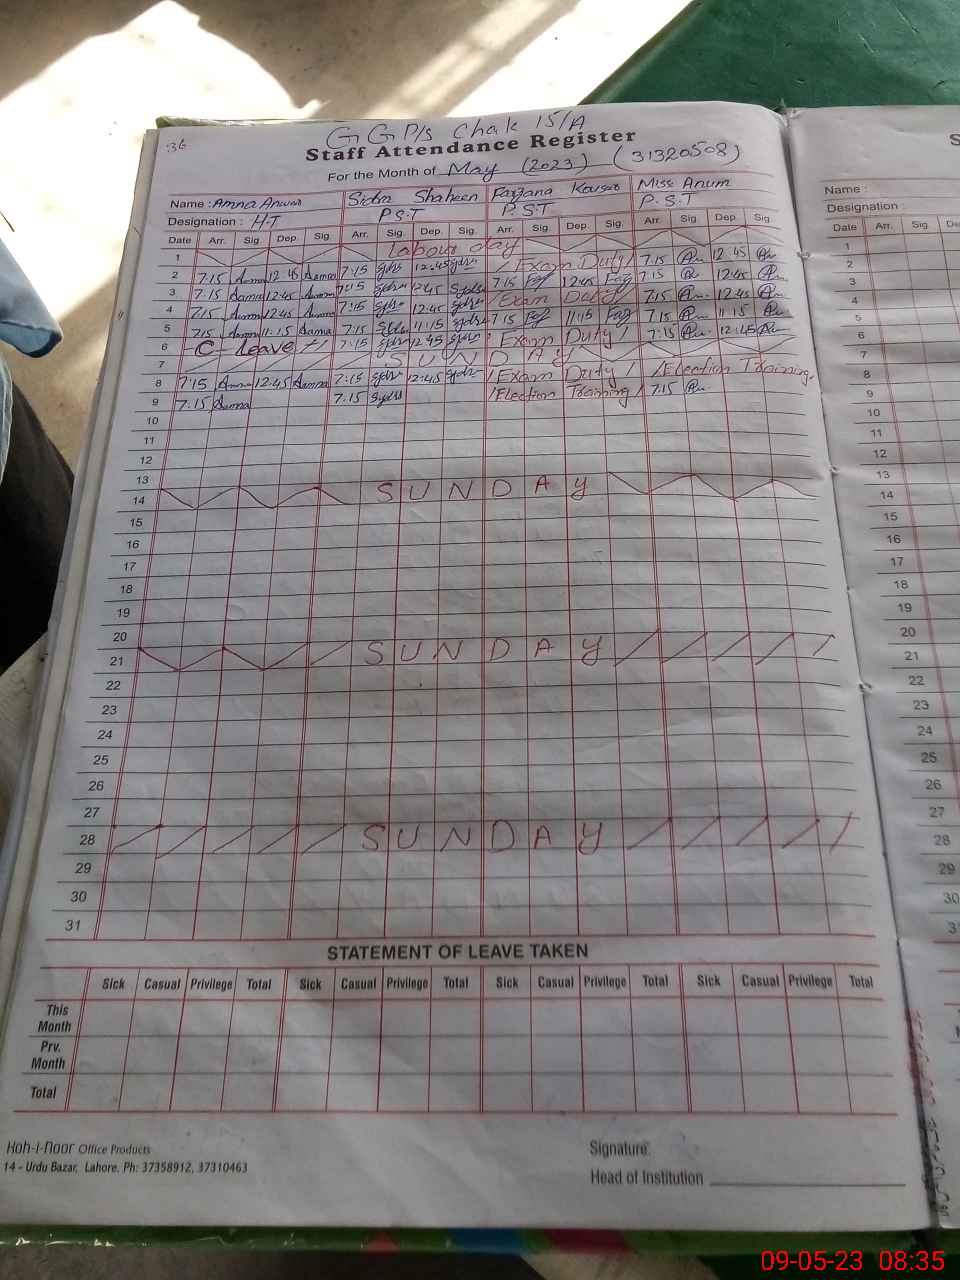 36
GGP/s Chak 15/A
Staff Attendance Register
For the Month of May (2023) (31320508)
Name : Amna Anwar Sidra Shaheen Farzana Kousar Miss Anum
Designation : H.T P.S.T P.S.T P.S.T
Date Arr. Sig. Dep. Sig. Arr. Sig. Dep. Sig. Arr. Sig. Dep. Sig. Arr. Sig. Dep. Sig.
1 Labour day
2 7:15 Aamna 12:45 Aamna 7:15 12:45 / Exam Duty / 7:15 12:45
3 7:15 Aamna 12:45 Aamna 7:15 12:45 7:15 12:45 7:15 12:45
4 7:15 Aamna 12:45 Aamna 7:15 12:45 / Exam Duty / 7:15 12:45
5 7:15 Aamna 11:15 Aamna 7:15 11:15 7:15 11:15 7:15 11:15
6 C- Leave 7:15 12:45 Exam Duty / 7:15 12:45
7 SUNDAY
8 7:15 Aamna 12:45 Aamna 7:15 12:45 / Exam Duty / / Election Training.
9 7:15 Aamna 7:15 / Election Training / 7:15
10
11
12
13
14 SUNDAY
15
16
17
18
19
20
21 SUNDAY
22
23
24
25
26
27
28 SUNDAY
29
30
31
STATEMENT OF LEAVE TAKEN
Sick Casual Privilege Total Sick Casual Privilege Total Sick Casual Privilege Total Sick Casual Privilege Total
This Month
Prv. Month
Total
Koh-i-noor Office Products
14 - Urdu Bazar, Lahore. Ph: 37358912, 37310463
Signature
Head of Institution
S
Name :
Designation :
Date Arr. Sig. De
1
2
3
4
5
6
7
8
9
10
11
12
13
14
15
16
17
18
19
20
21
22
23
24
25
26
27
28
29
30
3
09-05-23 08:35